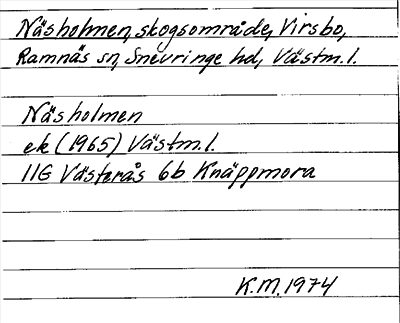 Näsholmen, skogsområde, Virsbo,
Ramnäs sn, Snevringe hd, Västm.l.
Näsholmen
ek (1965) Västm.l.
11G Västerås 6b Knäppmora
K.M. 1974